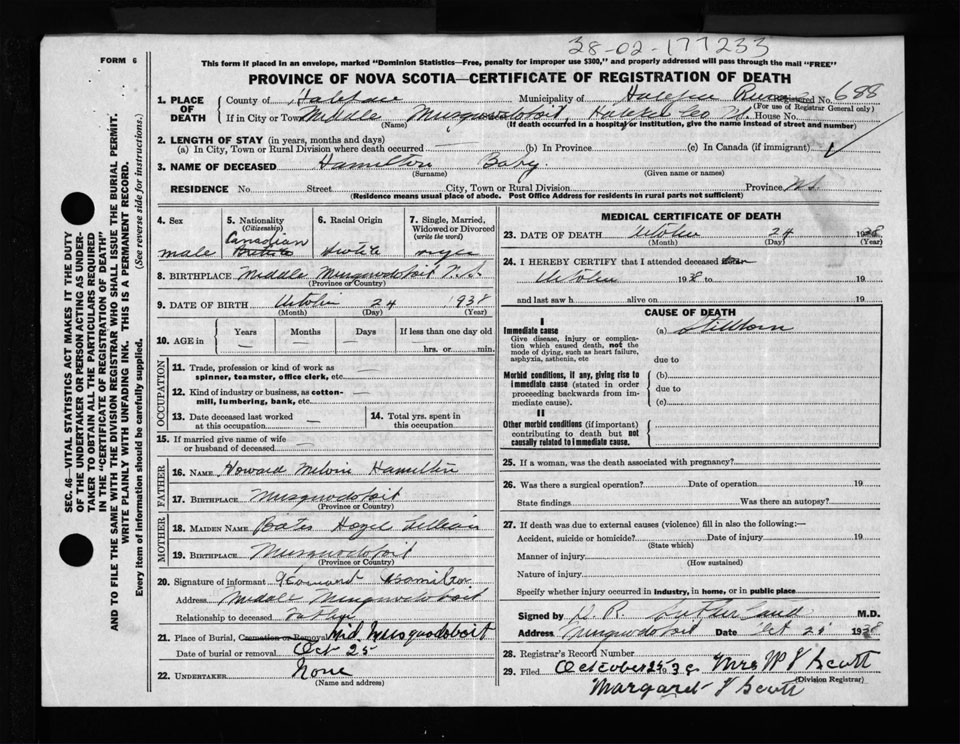 38-02-177233
FORM 6
This form if placed in an envelope, marked "Dominion Statistics—Free, penalty for improper use $300," and properly addressed will pass through the mail "FREE"
PROVINCE OF NOVA SCOTIA—CERTIFICATE OF REGISTRATION OF DEATH
SEC. 46—VITAL STATISTICS ACT MAKES IT THE DUTY
OF THE UNDERTAKER OR PERSON ACTING AS UNDER-
TAKER TO OBTAIN ALL THE PARTICULARS REQUIRED
IN THE "CERTIFICATE OF REGISTRATION OF DEATH"
AND TO FILE THE SAME WITH THE DIVISION REGISTRAR WHO SHALL ISSUE THE BURIAL PERMIT.
WRITE PLAINLY WITH UNFADING INK. THIS IS A PERMANENT RECORD.
Every item of information should be carefully supplied. (See reverse side for instructions.)
1. PLACE OF DEATH
County of Halifax Municipality of Halifax Registered No. 688
(For use of Registrar General only)
If in City or Town Middle Musquodoboit, Halifax Co House No.
(Name) (If death occurred in a hospital or institution, give the name instead of street and number)
2. LENGTH OF STAY (in years, months and days)
(a) In City, Town or Rural Division where death occurred — (b) In Province (c) In Canada (if immigrant)
3. NAME OF DECEASED Hamilton Baby
(Surname) (Given name or names)
RESIDENCE No. Street City, Town or Rural Division Province N.S.
(Residence means usual place of abode. Post Office Address for residents in rural parts not sufficient)
4. Sex
male
5. Nationality
(Citizenship)
Canadian
British
6. Racial Origin
7. Single, Married,
Widowed or Divorced
(write the word)
8. BIRTHPLACE Middle Musquodoboit N.S.
(Province or Country)
9. DATE OF BIRTH October 24 1938
(Month) (Day) (Year)
10. AGE in
Years Months Days If less than one day old
— — — — hrs. or — min.
OCCUPATION
11. Trade, profession or kind of work as
spinner, teamster, office clerk, etc. —
12. Kind of industry or business, as cotton-
mill, lumbering, bank, etc. —
13. Date deceased last worked
at this occupation —
14. Total yrs. spent in
this occupation
15. If married give name of wife
or husband of deceased —
FATHER
16. NAME Howard Melvin Hamilton
17. BIRTHPLACE Musquodoboit
(Province or Country)
MOTHER
18. MAIDEN NAME Bates Hazel Lillian
19. BIRTHPLACE Musquodoboit
(Province or Country)
20. Signature of informant Howard Hamilton
Address Middle Musquodoboit
Relationship to deceased Father
21. Place of Burial, Cremation or Removal Mid. Musquodoboit
Date of burial or removal Oct 25
22. UNDERTAKER None
(Name and address)
MEDICAL CERTIFICATE OF DEATH
23. DATE OF DEATH October 24 1938
(Month) (Day) (Year)
24. I HEREBY CERTIFY that I attended deceased from
October 1938 to 19
and last saw h alive on 19
CAUSE OF DEATH
I
Immediate cause
Give disease, injury or complica-
tion which caused death, not the
mode of dying, such as heart failure,
asphyxia, asthenia, etc
(a) Stillborn
due to
Morbid conditions, if any, giving rise to
immediate cause (stated in order
proceeding backwards from im-
mediate cause).
(b)
due to
(c)
II
Other morbid conditions (if important)
contributing to death but not
causally related to immediate cause.
25. If a woman, was the death associated with pregnancy?
26. Was there a surgical operation? Date of operation 19
State findings Was there an autopsy?
27. If death was due to external causes (violence) fill in also the following:—
Accident, suicide or homicide? Date of injury 19
(State which)
Manner of injury
(How sustained)
Nature of injury
Specify whether injury occurred in industry, in home, or in public place
Signed by D. R. Sutherland M.D.
Address Musquodoboit Date Oct 25 1938
28. Registrar's Record Number
29. Filed October 25 1938 Mrs W J Scott
(Division Registrar)
Margaret J Scott